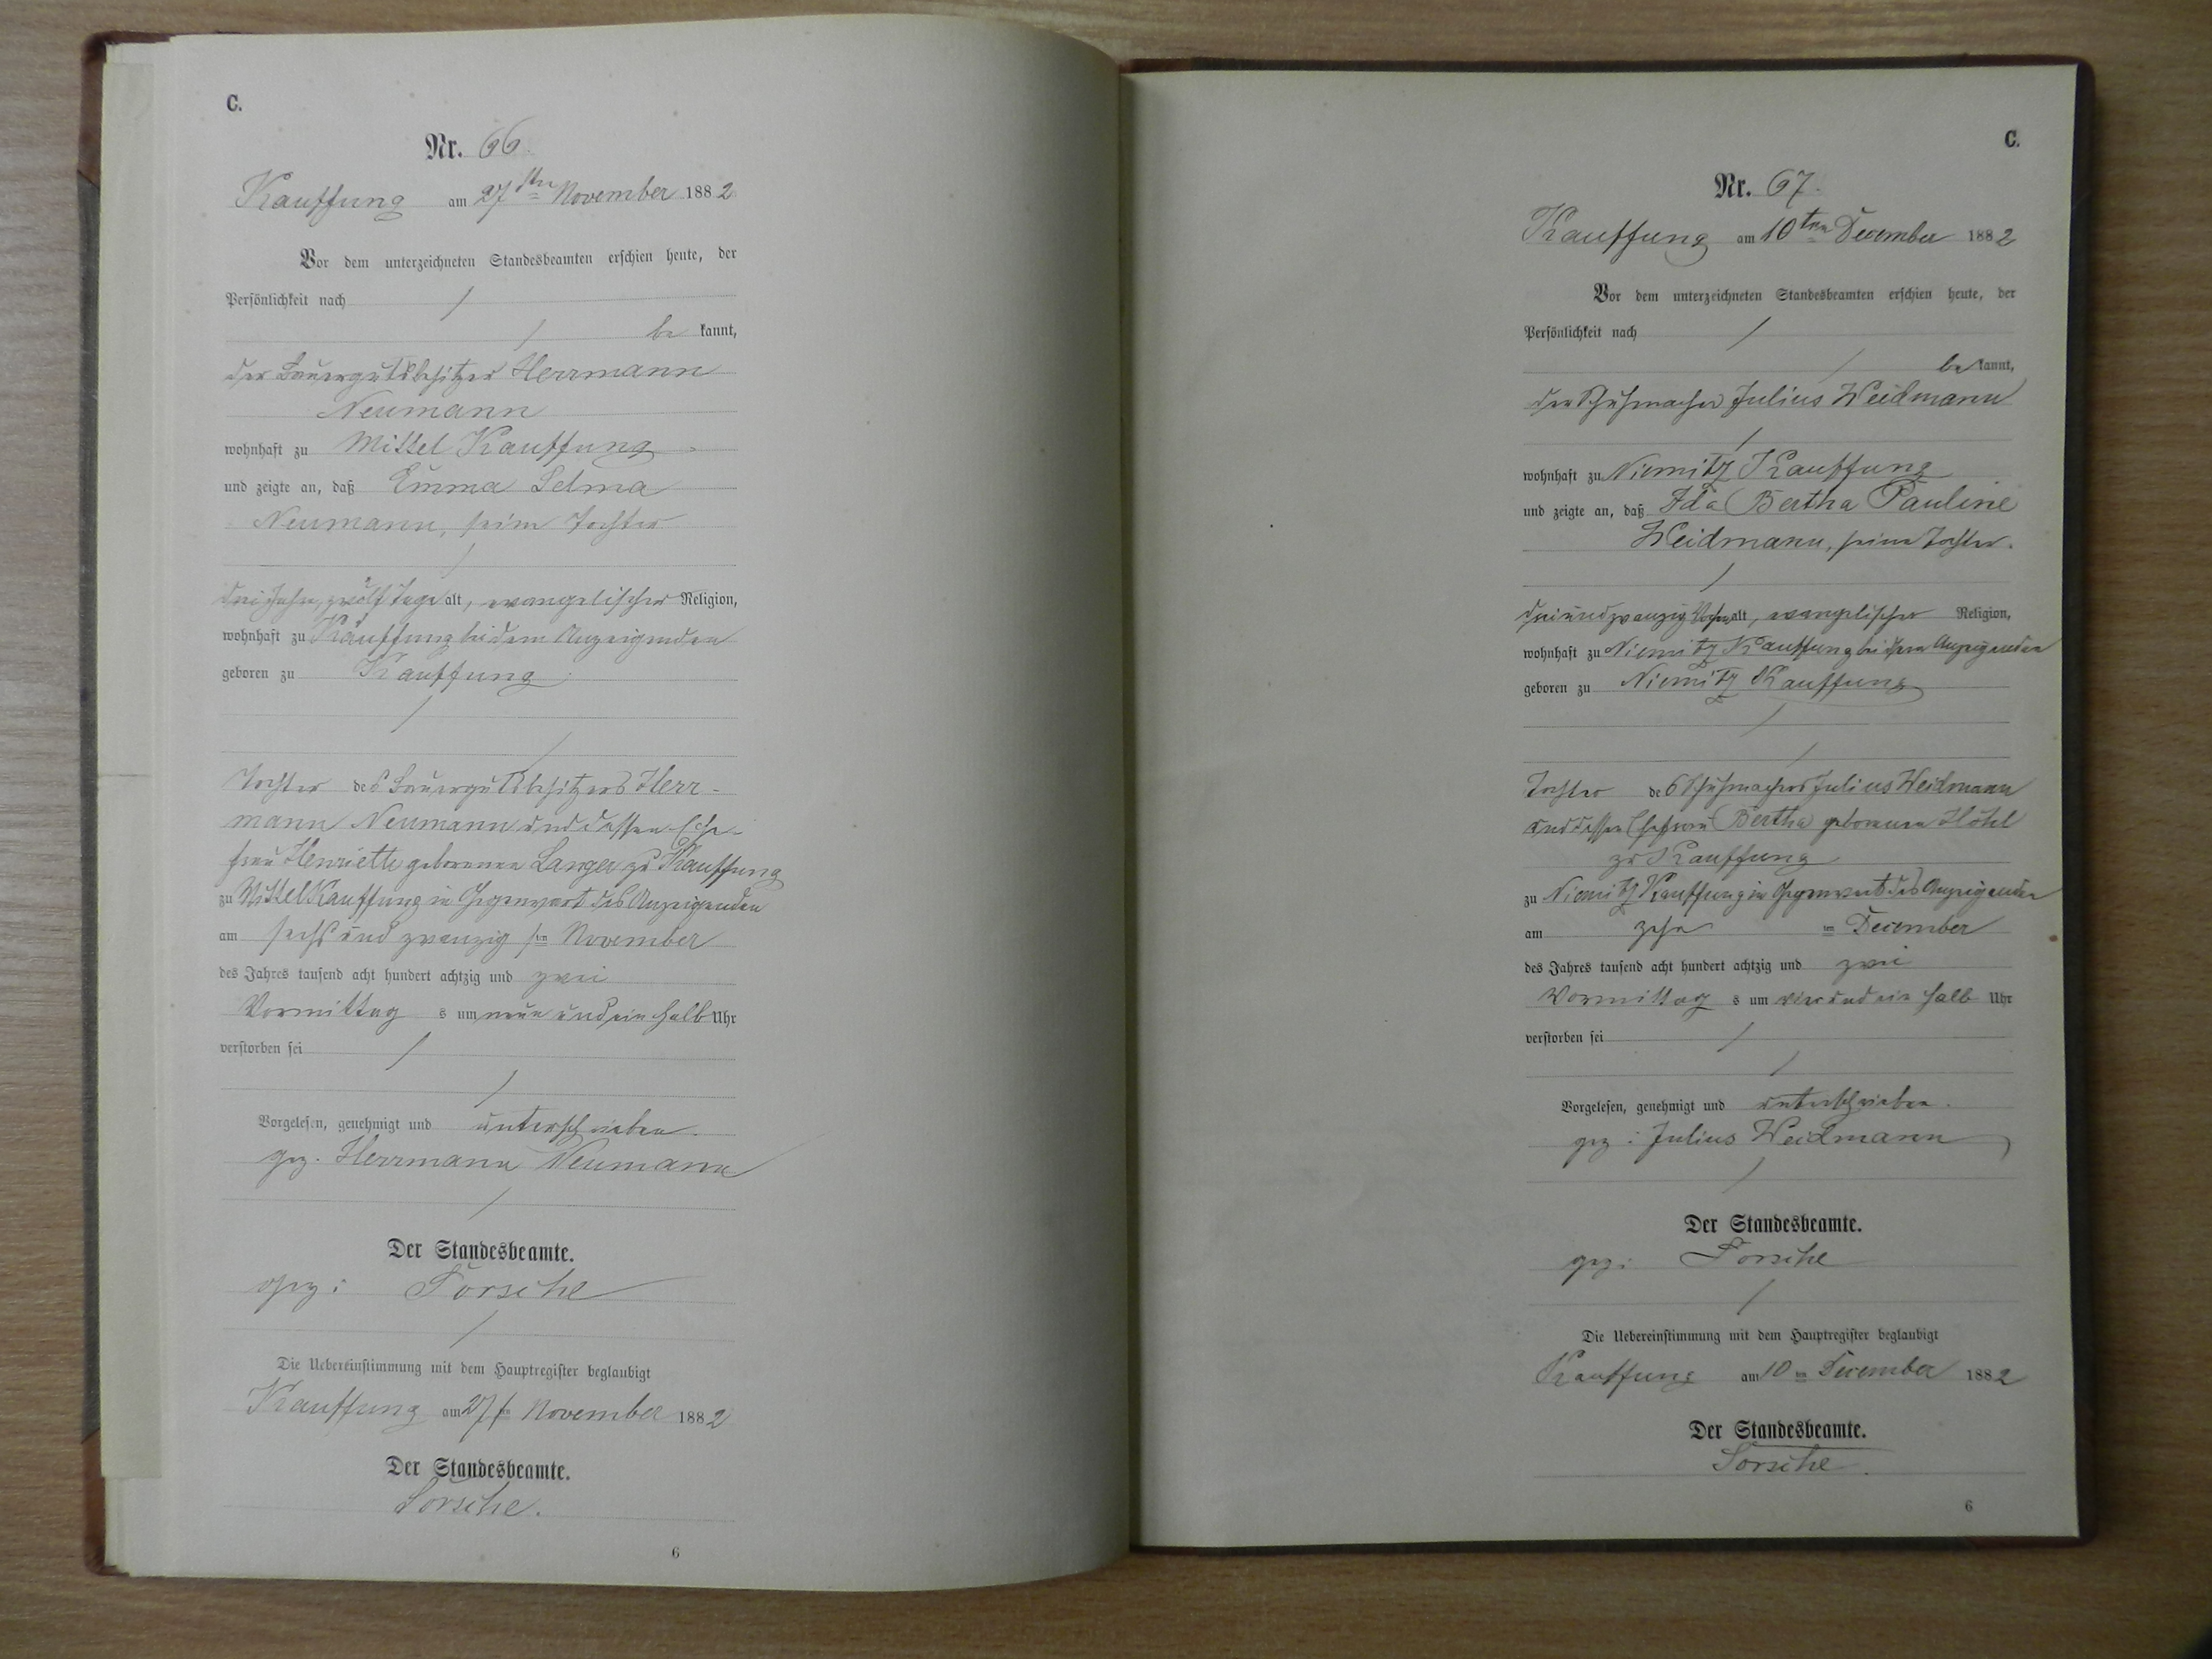 C.
Nr. 66.
Kauffung am 27sten November 1882
Vor dem unterzeichneten Standesbeamten erschien heute, der
Persönlichkeit nach
be kannt,
der Bauergutsbesitzer Herrmann
Neumann
wohnhaft zu Mittel Kauffung
und zeigte an, daß Emma Selma
Neumann, seine Tochter
drei Jahre, zwölf Tage alt, evangelischer Religion,
wohnhaft zu Kauffung bei dem Anzeigenden
geboren zu Kauffung
Tochter des Bauergutsbesitzers Herr-
mann Neumann und dessen Ehe-
frau Henriette geborenen Langer zu Kauffung
zu Mittel Kauffung in Gegenwart des Anzeigenden
am sechs und zwanzig sten November
des Jahres tausend acht hundert achtzig und zwei
Vormittag s um neun und ein halb Uhr
verstorben sei
Vorgelesen, genehmigt und unterschrieben.
gez. Herrmann Neumann
Der Standesbeamte.
gez:
Die Uebereinstimmung mit dem Hauptregister beglaubigt
Kauffung am 27sten November 1882
Der Standesbeamte.
6
C.
Nr. 67.
Kauffung am 10ten December 1882
Vor dem unterzeichneten Standesbeamten erschien heute, der
Persönlichkeit nach
be kannt,
der Schuhmacher Julius Weidmann
wohnhaft zu Niemitz Kauffung
und zeigte an, daß Ida Bertha Pauline
Weidmann, seine Tochter.
drei und zwanzig Wochen alt, evangelischer Religion,
wohnhaft zu Niemitz Kauffung bei dem Anzeigenden
geboren zu Niemitz Kauffung
Tochter des Schuhmachers Julius Weidmann
und dessen Ehefrau Bertha geborenen
zu Kauffung
zu Niemitz Kauffung in Gegenwart des Anzeigenden
am zehn ten December
des Jahres tausend acht hundert achtzig und zwei
Vormittag s um vier und ein halb Uhr
verstorben sei
Vorgelesen, genehmigt und unterschrieben.
gez: Julius Weidmann
Der Standesbeamte.
gez:
Die Uebereinstimmung mit dem Hauptregister beglaubigt
Kauffung am 10 ten December 1882
Der Standesbeamte.
6